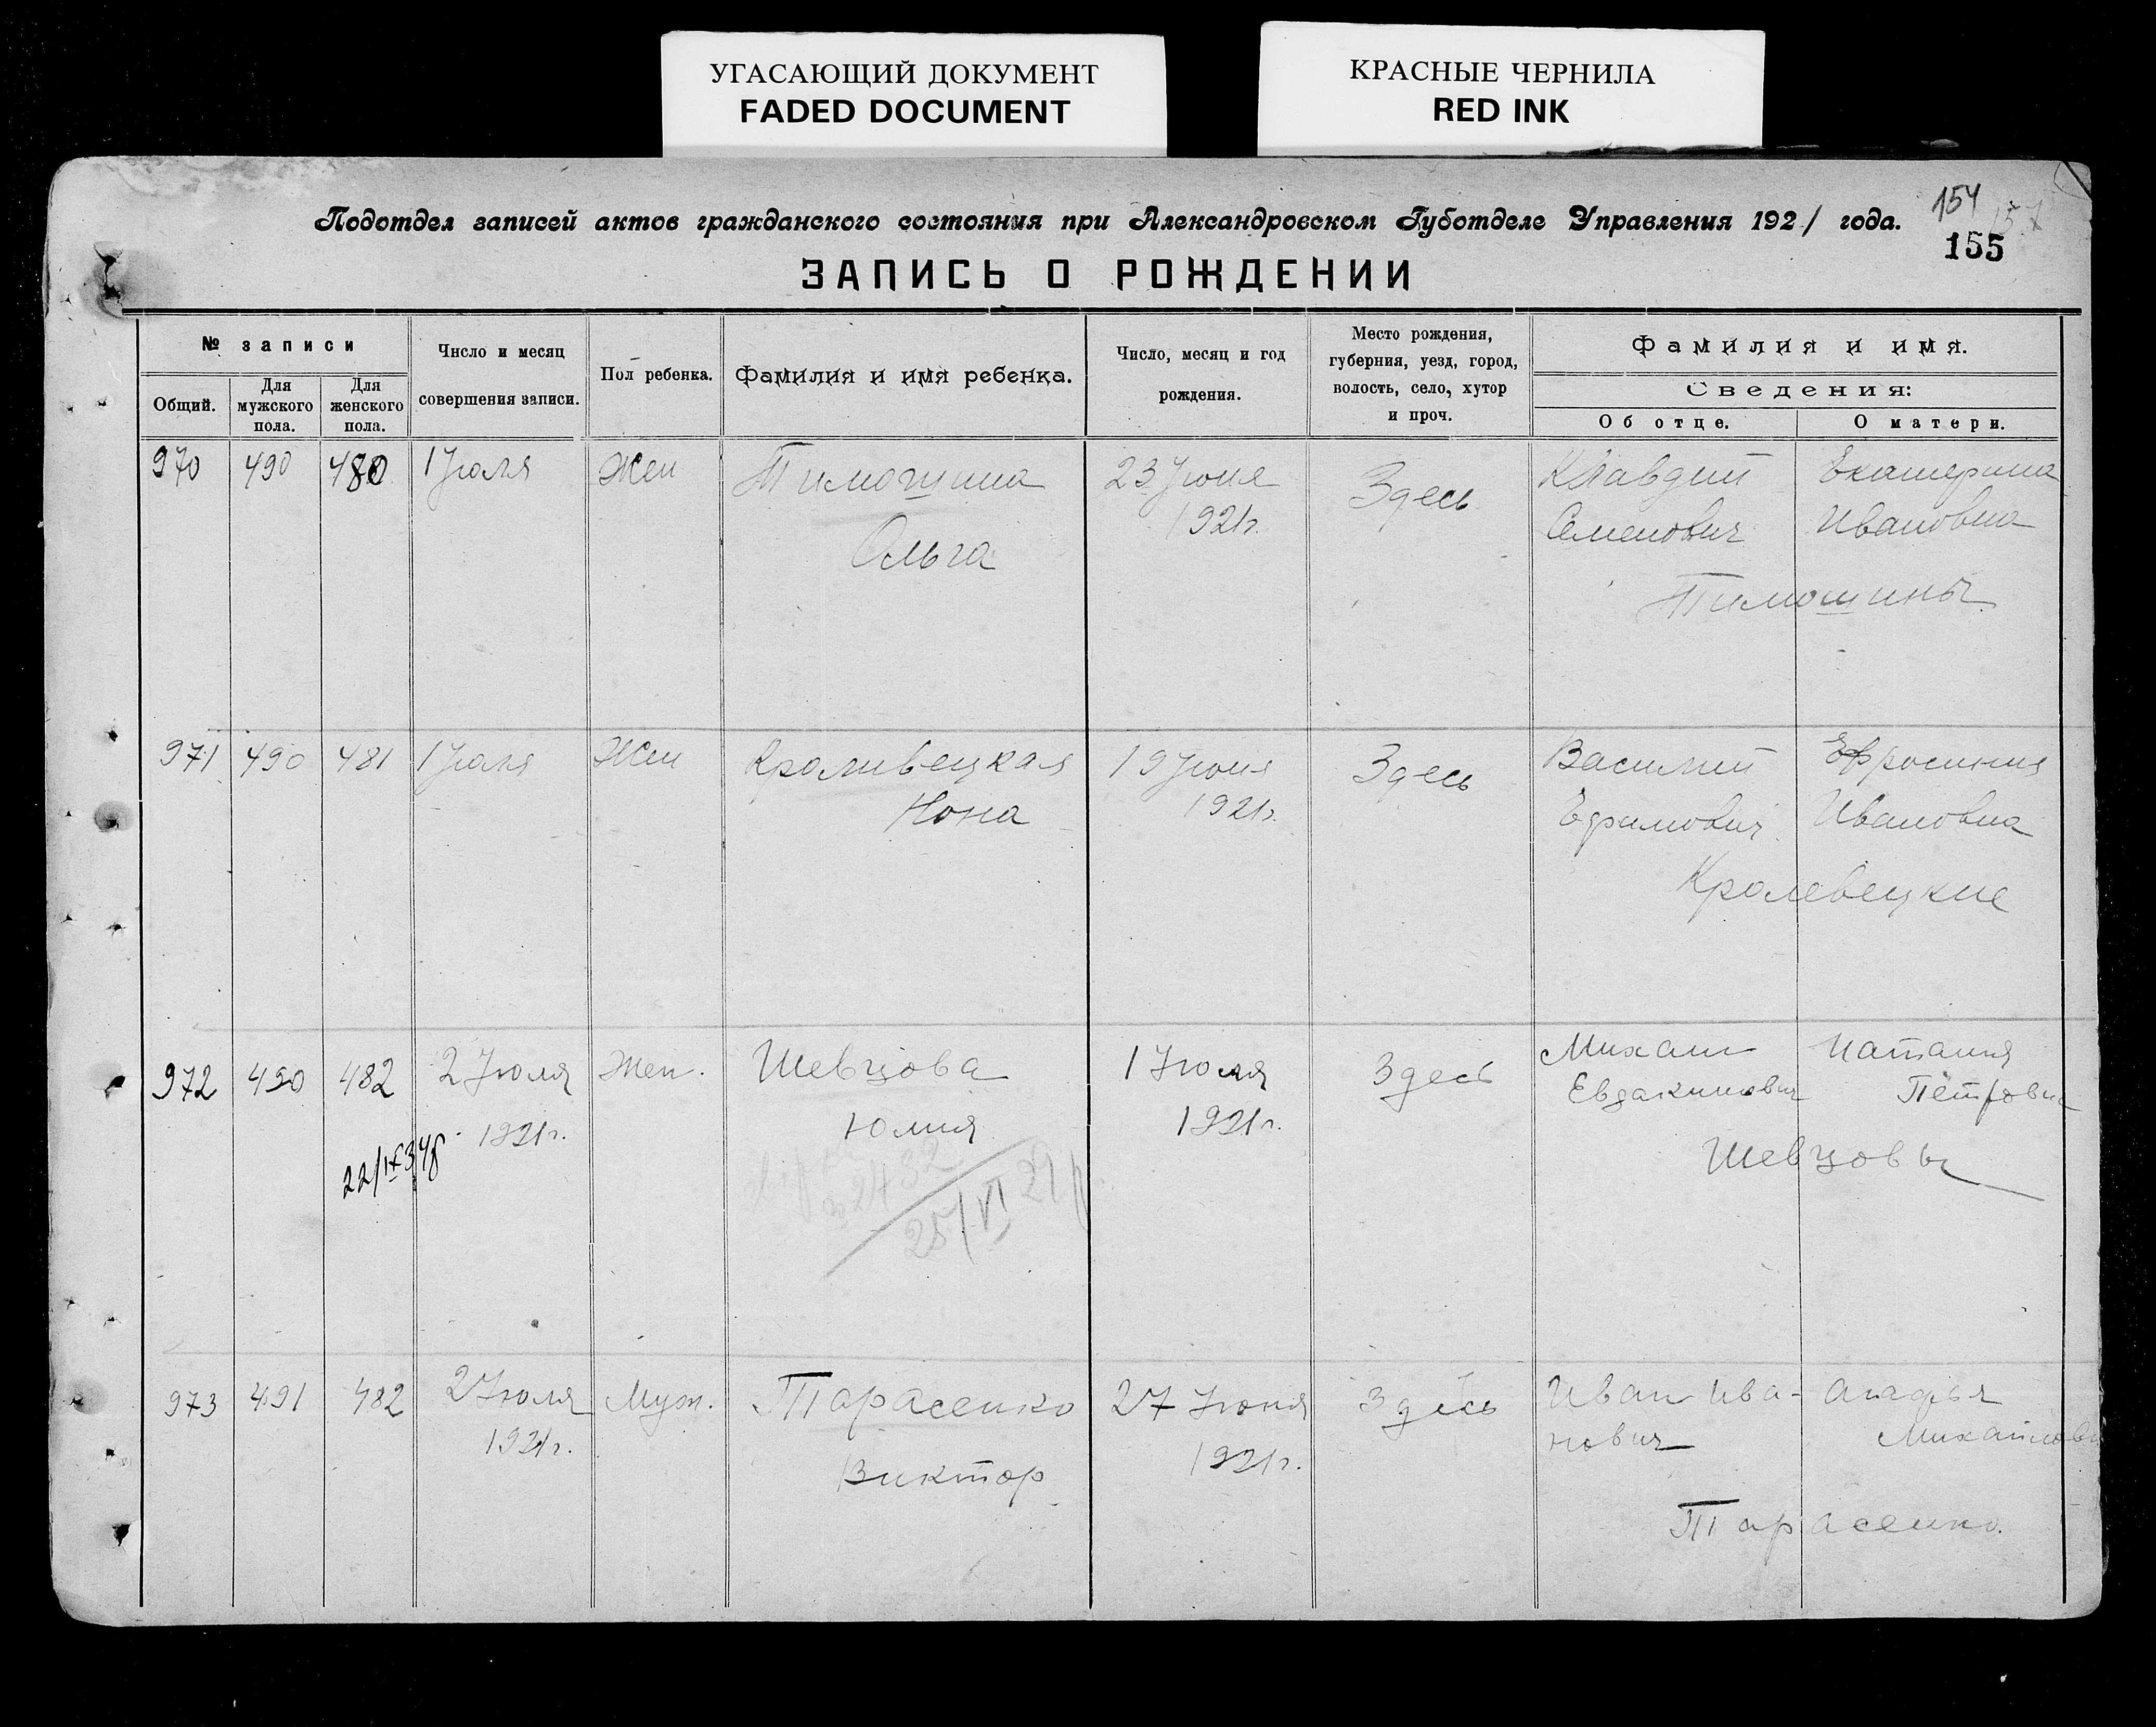 УГАСАЮЩИЙ ДОКУМЕНТ
FADED DOCUMENT
КРАСНЫЕ ЧЕРНИЛА
RED INK
154
Подотдел записей актов гражданского состояния при Александровском Губотделе Управления 1921 года.
155
ЗАПИСЬ О РОЖДЕНИИ
№ записи
Общий.
Для мужского пола.
Для женского пола.
Число и месяц
совершения записи.
Пол ребенка.
Фамилия и имя ребенка.
Число, месяц и год
рождения.
Место рождения,
губерния, уезд, город,
волость, село, хутор
и проч.
Фамилия и имя.
Сведения:
Об отце.
О матери.
970 490 480 1 Июля Жен Тимошина 23 Июня Здесь Клавдий Екатерина
Ольга 1921г. Семенович Ивановна
Тимошины
971 490 481 1 Июля Жен Кроливецкая 19 Июня Здесь Василий Ефросиния
Нона 1921г. Ефимович Ивановна
Кролевецкие
972 490 482 2 Июля Жен. Шевцова 1 Июля Здесь Михаил Наталия
1921г. Юлия 1921г. Евдакимович Петровна
Шевцовы
25/VI 29
973 491 482 2 Июля Муж. Тарасенко 27 Июня Здесь Иван Ива- Агафья
1921г. Виктор 1921г. нович Михайловн
Тарасенко.